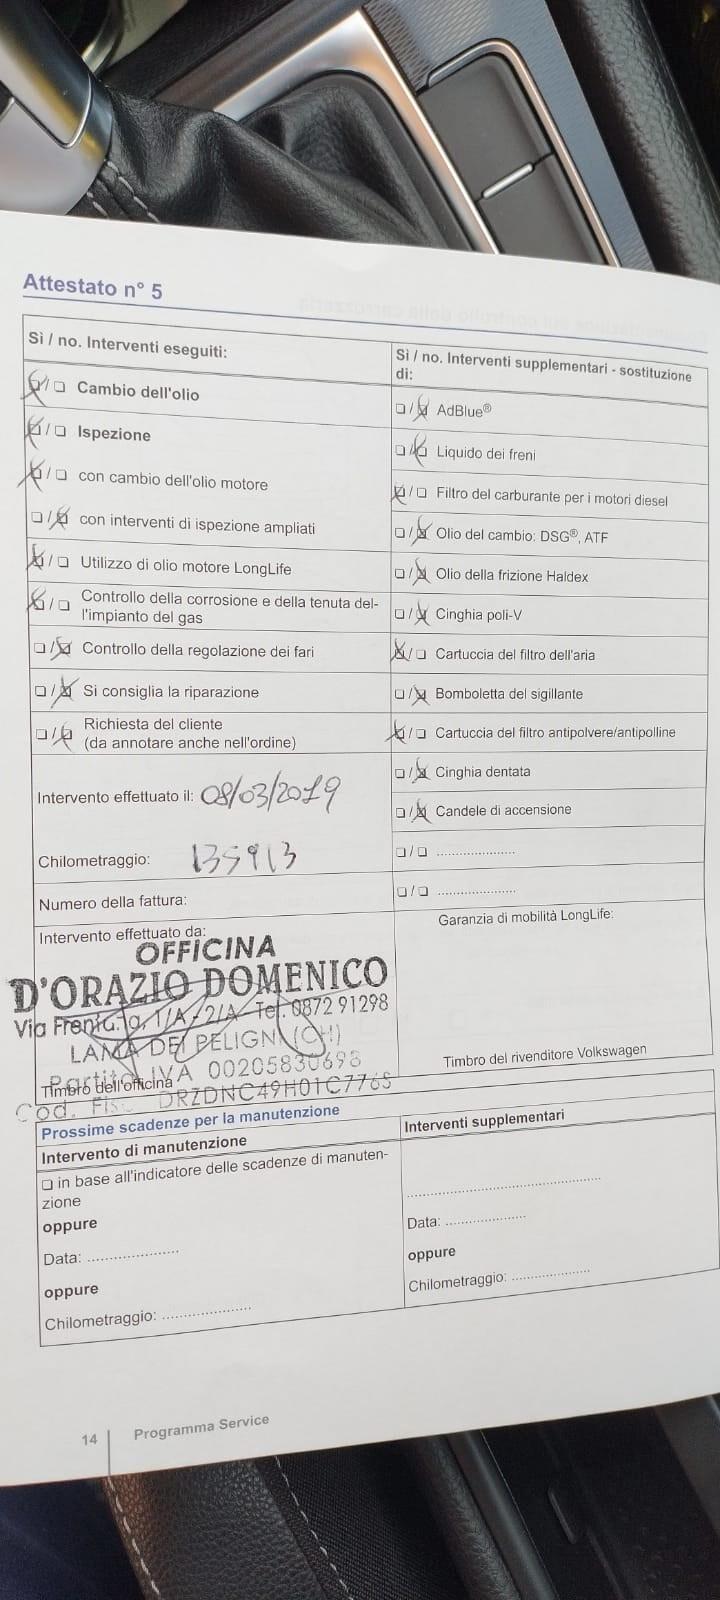 Attestato n° 5
Sì / no. Interventi eseguiti:
☒/☐ Cambio dell'olio
☒/☐ Ispezione
☒/☐ con cambio dell'olio motore
☐/☒ con interventi di ispezione ampliati
☒/☐ Utilizzo di olio motore LongLife
☒/☐ Controllo della corrosione e della tenuta del-
l'impianto del gas
☐/☒ Controllo della regolazione dei fari
☐/☒ Si consiglia la riparazione
☐/☒ Richiesta del cliente
(da annotare anche nell'ordine)
Intervento effettuato il: 08/03/2019
Chilometraggio: 135913
Numero della fattura:
Intervento effettuato da:
OFFICINA
D'ORAZIO DOMENICO
Via Frentana, 1/A - 2/A - Tel. 0872 91298
LAMA DEI PELIGNI (CH)
Partita IVA 00205830698
Timbro dell'officina
Cod. Fisc. DRZDNC49H01C776S
Sì / no. Interventi supplementari - sostituzione
di:
☐/☒ AdBlue®
☐/☒ Liquido dei freni
☒/☐ Filtro del carburante per i motori diesel
☐/☒ Olio del cambio: DSG®, ATF
☐/☒ Olio della frizione Haldex
☐/☒ Cinghia poli-V
☒/☐ Cartuccia del filtro dell'aria
☐/☒ Bomboletta del sigillante
☒/☐ Cartuccia del filtro antipolvere/antipolline
☐/☒ Cinghia dentata
☐/☒ Candele di accensione
☐/☐ ....................
☐/☐ ....................
Garanzia di mobilità LongLife:
Timbro del rivenditore Volkswagen
Prossime scadenze per la manutenzione
Intervento di manutenzione
☐ in base all'indicatore delle scadenze di manuten-
zione
oppure
Data: ....................
oppure
Chilometraggio: ....................
Interventi supplementari
..........................................
Data: ....................
oppure
Chilometraggio: ....................
14
Programma Service